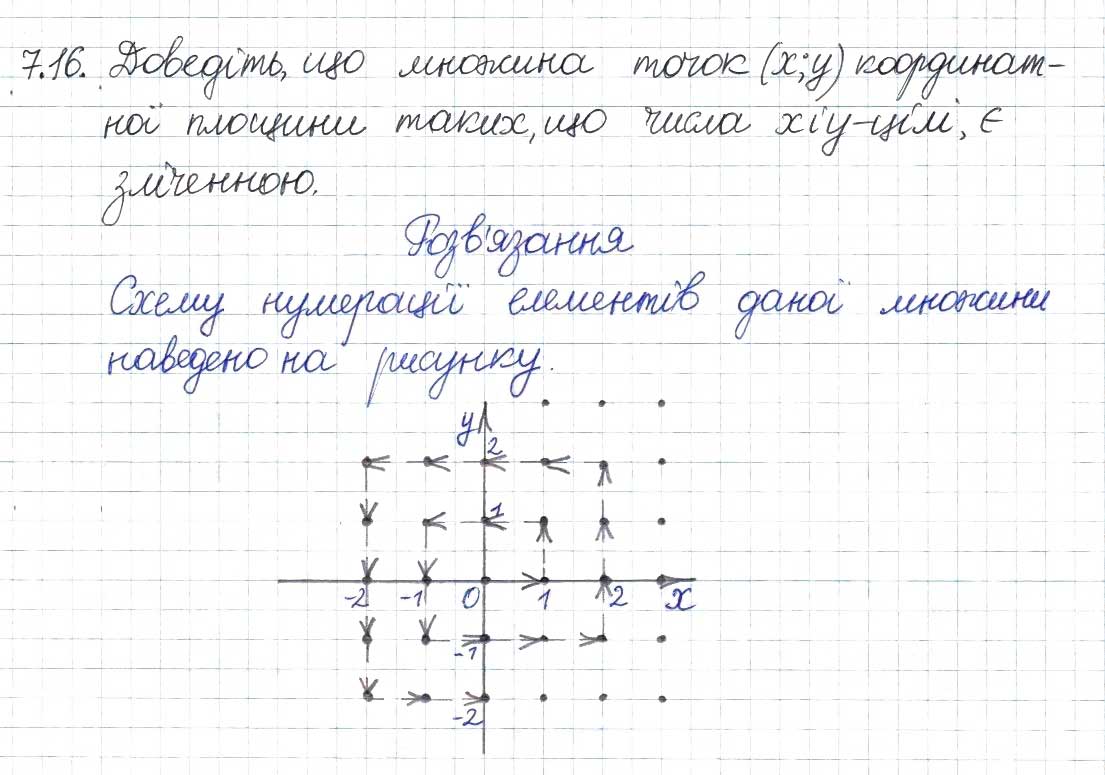 7.16. Доведіть, що множина точок (x; y) координат-
ної площини таких, що числа x і y – цілі, є
зліченною.
Розв'язання
Схему нумерації елементів даної множини
наведено на рисунку.
y
2
1
-2 -1 0 1 2 x
-1
-2